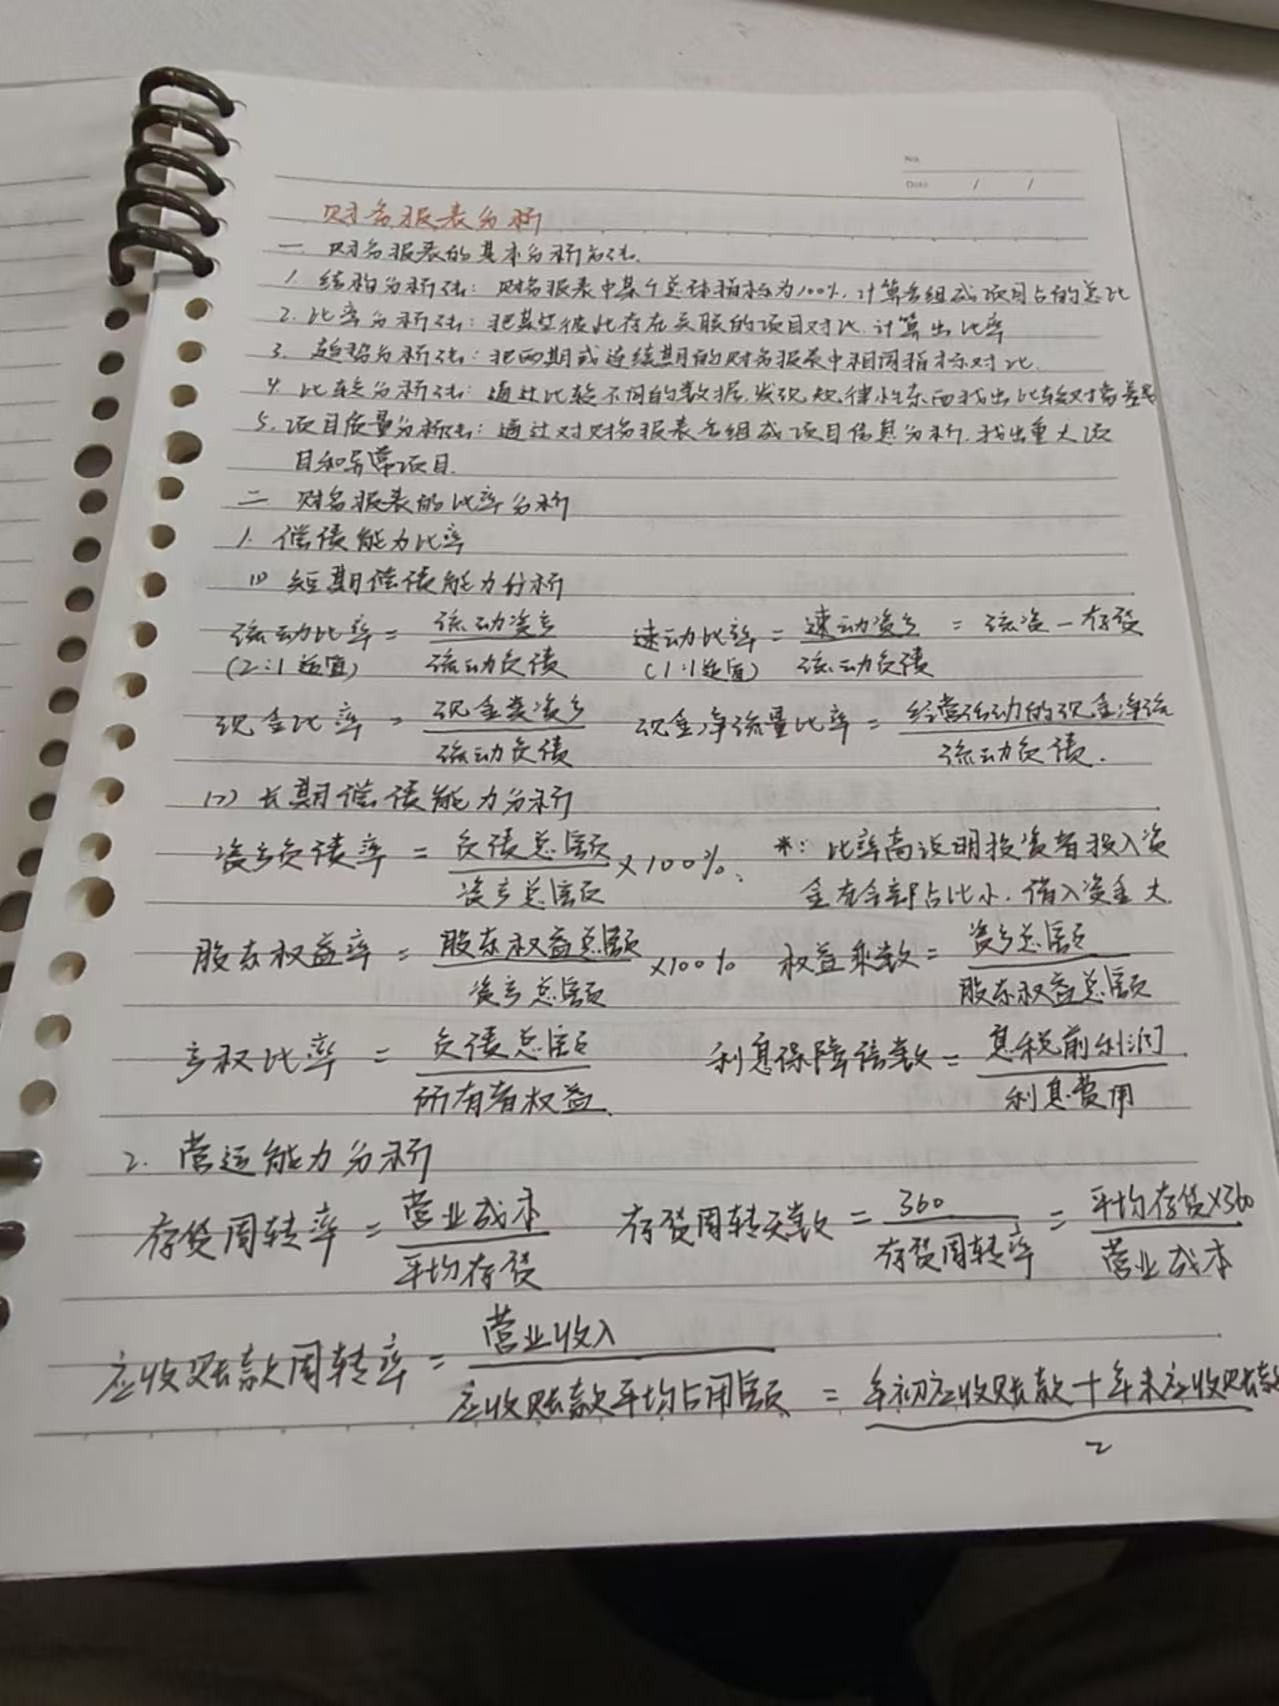 No.
Date / /
财务报表分析
一. 财务报表的基本分析方法.
1. 结构分析法: 财务报表中某个总体指标为100%, 计算各组成项目占的总比
2. 比率分析法: 把某些彼此存在关联的项目对比, 计算出比率
3. 趋势分析法: 把两期或连续期的财务报表中相同指标对比.
4. 比较分析法: 通过比较不同的数据, 发现规律性东西找出比较对象差异
5. 项目质量分析法: 通过对财务报表各组成项目信息分析, 找出重大项
目和异常项目.
二. 财务报表的比率分析
1. 偿债能力比率
(1) 短期偿债能力分析
流动比率 = 流动资产 / 流动负债 (2:1适宜) 速动比率 = 速动资产 / 流动负债 = 流资 - 存货 (1:1适宜)
现金比率 = 现金类资产 / 流动负债 现金净流量比率 = 经营活动的现金净流 / 流动负债.
(2) 长期偿债能力分析
资产负债率 = 负债总额 / 资产总额 ×100%. *: 比率高说明投资者投入资
金在全部占比小. 借入资金大.
股东权益率 = 股东权益总额 / 资产总额 ×100% 权益乘数 = 资产总额 / 股东权益总额
产权比率 = 负债总额 / 所有者权益. 利息保障倍数 = 息税前利润 / 利息费用.
2. 营运能力分析
存货周转率 = 营业成本 / 平均存货 存货周转天数 = 360 / 存货周转率 = 平均存货×360 / 营业成本
应收账款周转率 = 营业收入 / 应收账款平均占用额 = 年初应收账款+年末应收账款 / 2